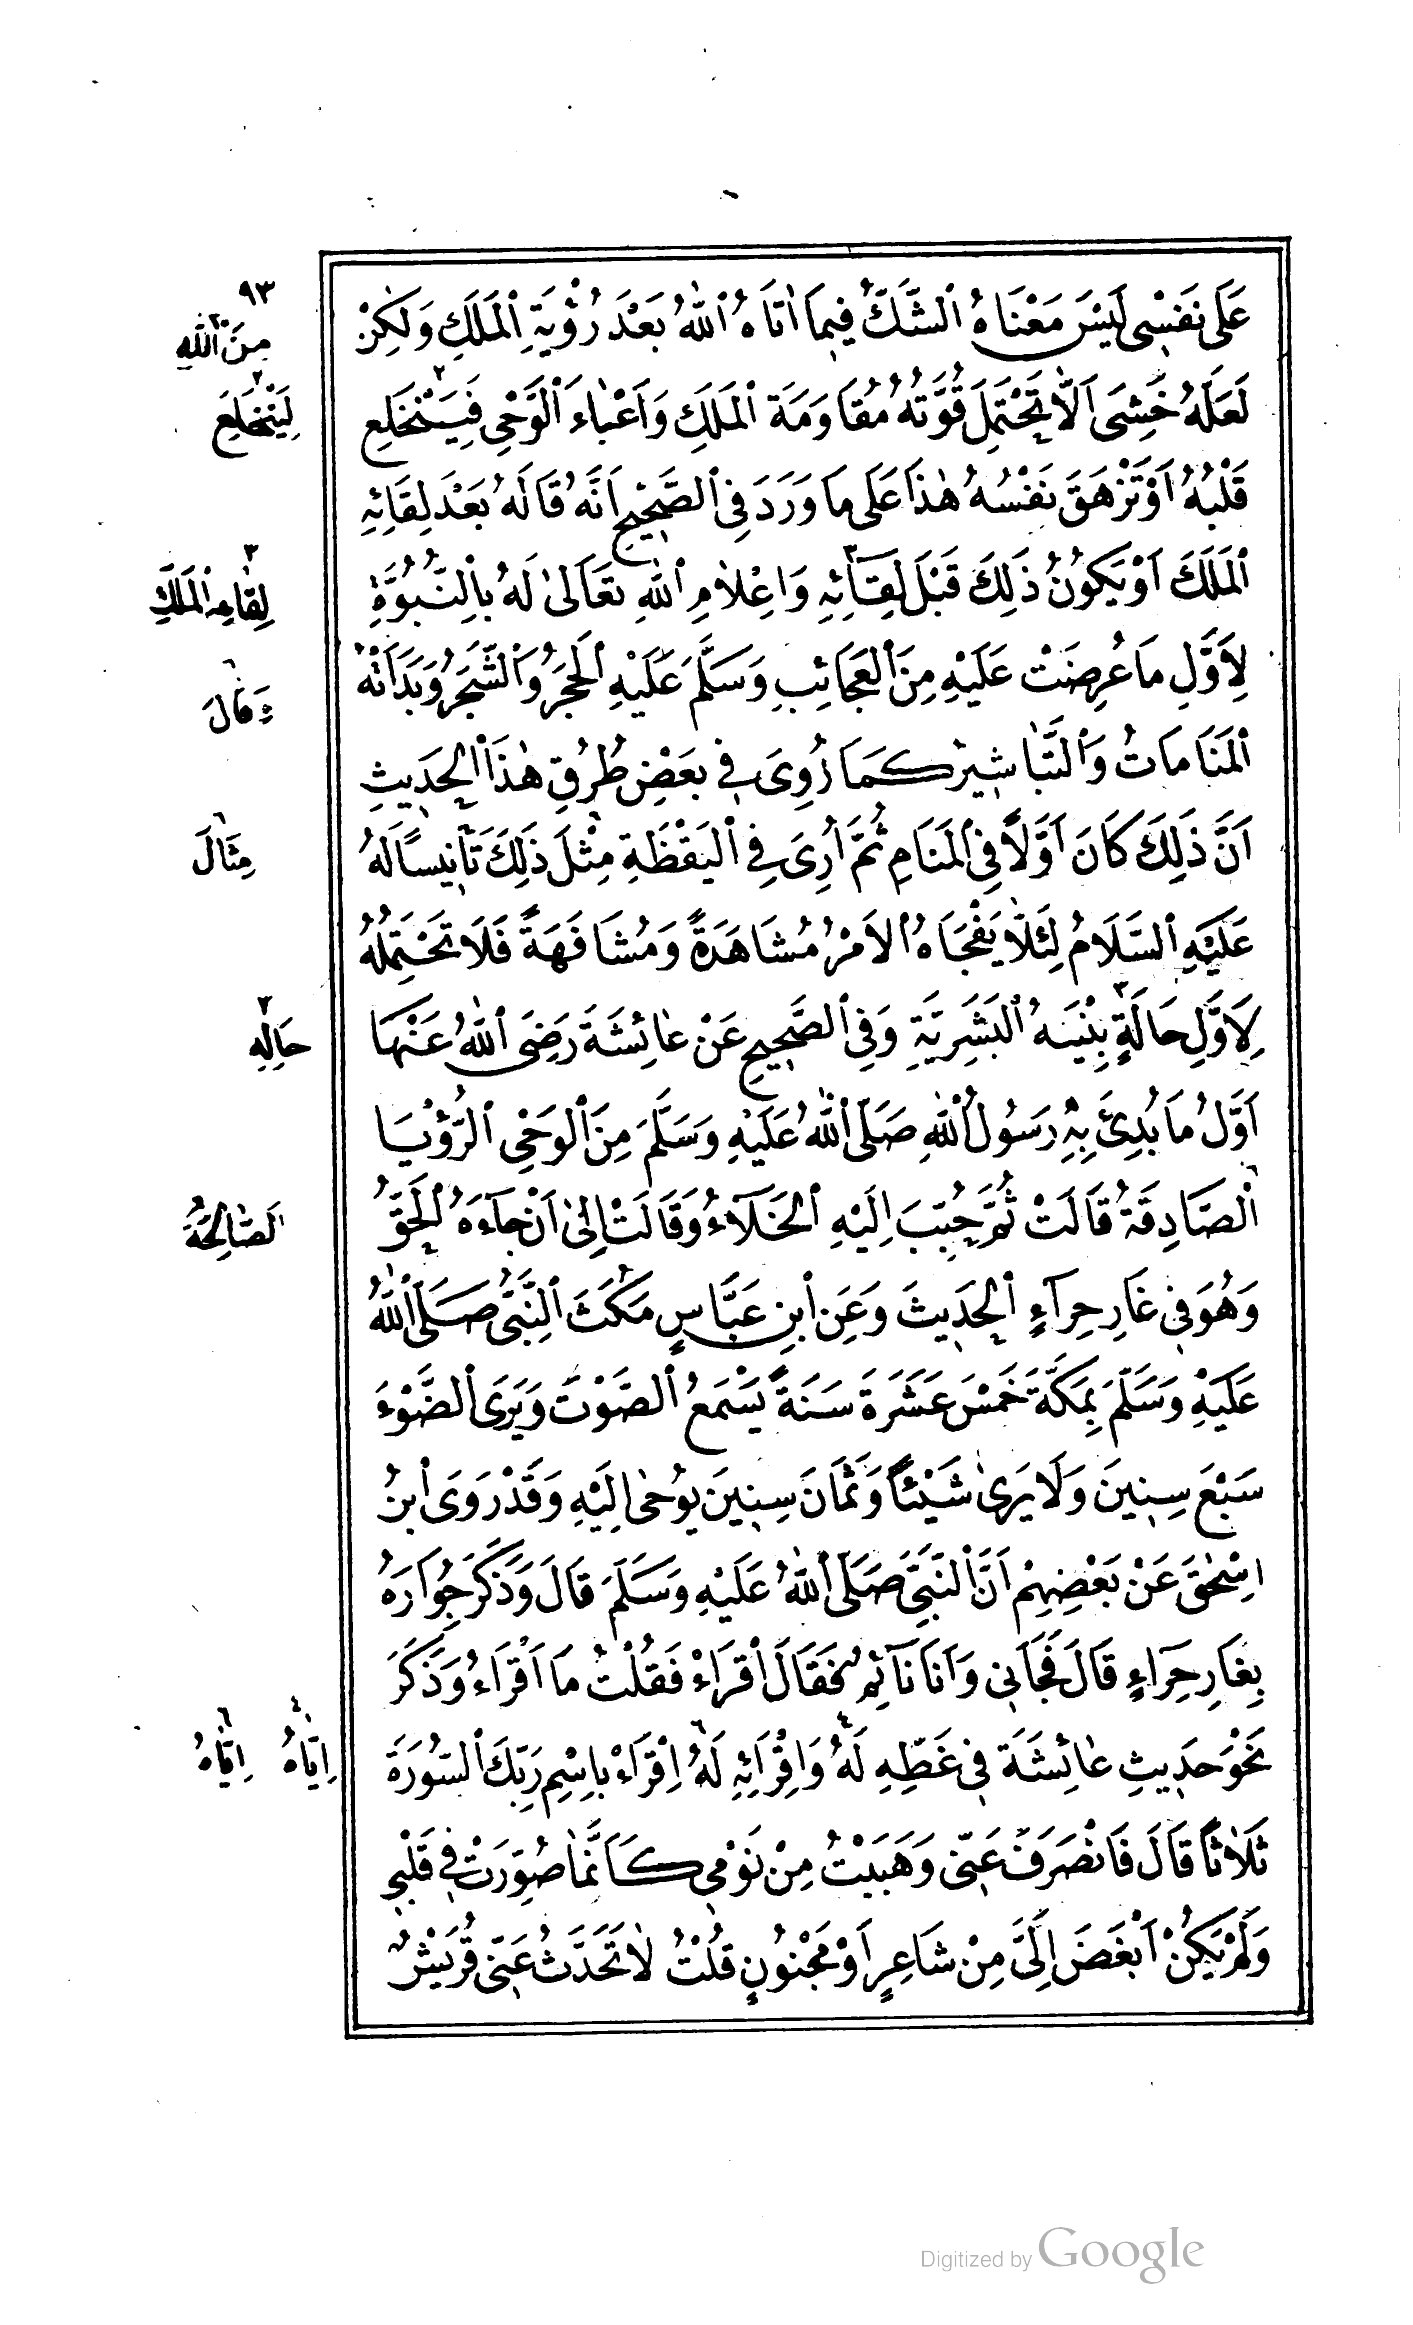 عَلَى نَفْسِى لَيْسَ مَعْنَاهُ ٱلشَّكَّ فِيمَا اٰتَاهُ ٱللّٰهُ بَعْدَ رُؤْيَةِ ٱلْمَلَكِ وَلٰكِنْ
لَعَلَّهُ خَشِىَ اَلَّا تَحْتَمِلَ قُوَّتُهُ مُقَاوَمَةَ ٱلْمَلَكِ وَاَعْبَاءَ ٱلْوَحْىِ فَيَنْخَلِعِ
قَلْبُهُ اَوْ تَزْهَقَ نَفْسُهُ هٰذَا عَلَى مَا وَرَدَ فِى ٱلصَّحِيحِ اَنَّهُ قَالَهُ بَعْدَ لِقَائِهِ
ٱلْمَلَكَ اَوْ يَكُونُ ذٰلِكَ قَبْلَ لِقَآئِهِ وَاِعْلَامِ ٱللّٰهِ تَعَالىٰ لَهُ بِالنُّبُوَّةِ
لِاَوَّلِ مَا عُرِضَتْ عَلَيْهِ مِنَ ٱلْعَجَائِبِ وَسَلَّمَ عَلَيْهِ ٱلْحَجَرُ وَٱلشَّجَرُ وَبَدَأَتْهُ
ٱلْمَنَامَاتُ وَٱلتَّبَاشِيرُ كَمَا رُوِىَ فِى بَعْضِ طُرُقِ هٰذَا ٱلْحَدِيثِ
اَنَّ ذٰلِكَ كَانَ اَوَّلًا فِى ٱلْمَنَامِ ثُمَّ اُرِىَ فِى ٱلْيَقْظَةِ مِثْلَ ذٰلِكَ تَأْنِيسًا لَهُ
عَلَيْهِ ٱلسَّلَامُ لِئَلَّا يَفْجَاَهُ ٱلْاَمْرُ مُشَاهَدَةً وَمُشَافَهَةً فَلَا تَحْتَمِلُهُ
لِاَوَّلِ حَالَةٍ بِنْيَتُهُ ٱلْبَشَرِيَّةِ وَفِى ٱلصَّحِيحِ عَنْ عَائِشَةَ رَضِىَ ٱللّٰهُ عَنْهَا
اَوَّلُ مَا بُدِئَ بِهِ رَسُولُ ٱللّٰهِ صَلَّى ٱللّٰهُ عَلَيْهِ وَسَلَّمَ مِنَ ٱلْوَحْىِ ٱلرُّؤْيَا
ٱلصَّادِقَةُ قَالَتْ ثُمَّ حُبِّبَ اِلَيْهِ ٱلْخَلَآءُ وَقَالَتْ اِلىٰ اَنْ جَاءَهُ ٱلْحَقُّ
وَهُوَ فِى غَارِ حِرَآءٍ ٱلْحَدِيثَ وَعَنِ ٱبْنِ عَبَّاسٍ مَكَثَ ٱلنَّبِىُّ صَلَّى ٱللّٰهُ
عَلَيْهِ وَسَلَّمَ بِمَكَّةَ خَمْسَ عَشَرَةَ سَنَةً يَسْمَعُ ٱلصَّوْتَ وَيَرَى ٱلضَّوْءَ
سَبْعَ سِنِينَ وَلَا يَرىٰ شَيْئًا وَثَمَانَ سِنِينَ يُوحٰى اِلَيْهِ وَقَدْ رَوَى ٱبْنُ
اِسْحٰقَ عَنْ بَعْضِهِمْ اَنَّ ٱلنَّبِىَّ صَلَّى ٱللّٰهُ عَلَيْهِ وَسَلَّمَ قَالَ وَذَكَرَ جِوَارَهُ
بِغَارِ حِرَاءٍ قَالَ فَجَاَنِى وَاَنَا نَآئِمٌ فَقَالَ اِقْرَاْ فَقُلْتُ مَا اَقْرَاءُ وَذَكَرَ
نَحْوَ حَدِيثِ عَائِشَةَ فِى غَطِّهِ لَهُ وَاِقْرَائِهِ لَهُ اِقْرَاْ بِاسْمِ رَبِّكَ ٱلسُّورَةَ
ثَلَاثًا قَالَ فَانْصَرَفَ عَنِّى وَهَبَبْتُ مِنْ نَوْمِى كَاَنَّمَا صُوِّرَتْ فِى قَلْبِى
وَلَمْ يَكُنْ اَبْغَضَ اِلَىَّ مِنْ شَاعِرٍ اَوْ مَجْنُونٍ قُلْتُ لَا تَحَدَّثُ عَنِّى قُرَيْشٌ
٩٣
٢ مِنَ ٱللّٰهِ
٢ لِيَنْخَلِعَ
٣ لِقَاءِ ٱلْمَلَكِ
٦ وَقَالَ
٦ مِثَالَ
٢ حَالِهِ
ٱلصَّالِحَةُ
٤ اِيَّاهُ ٦ اِيَّاهُ
Digitized by Google